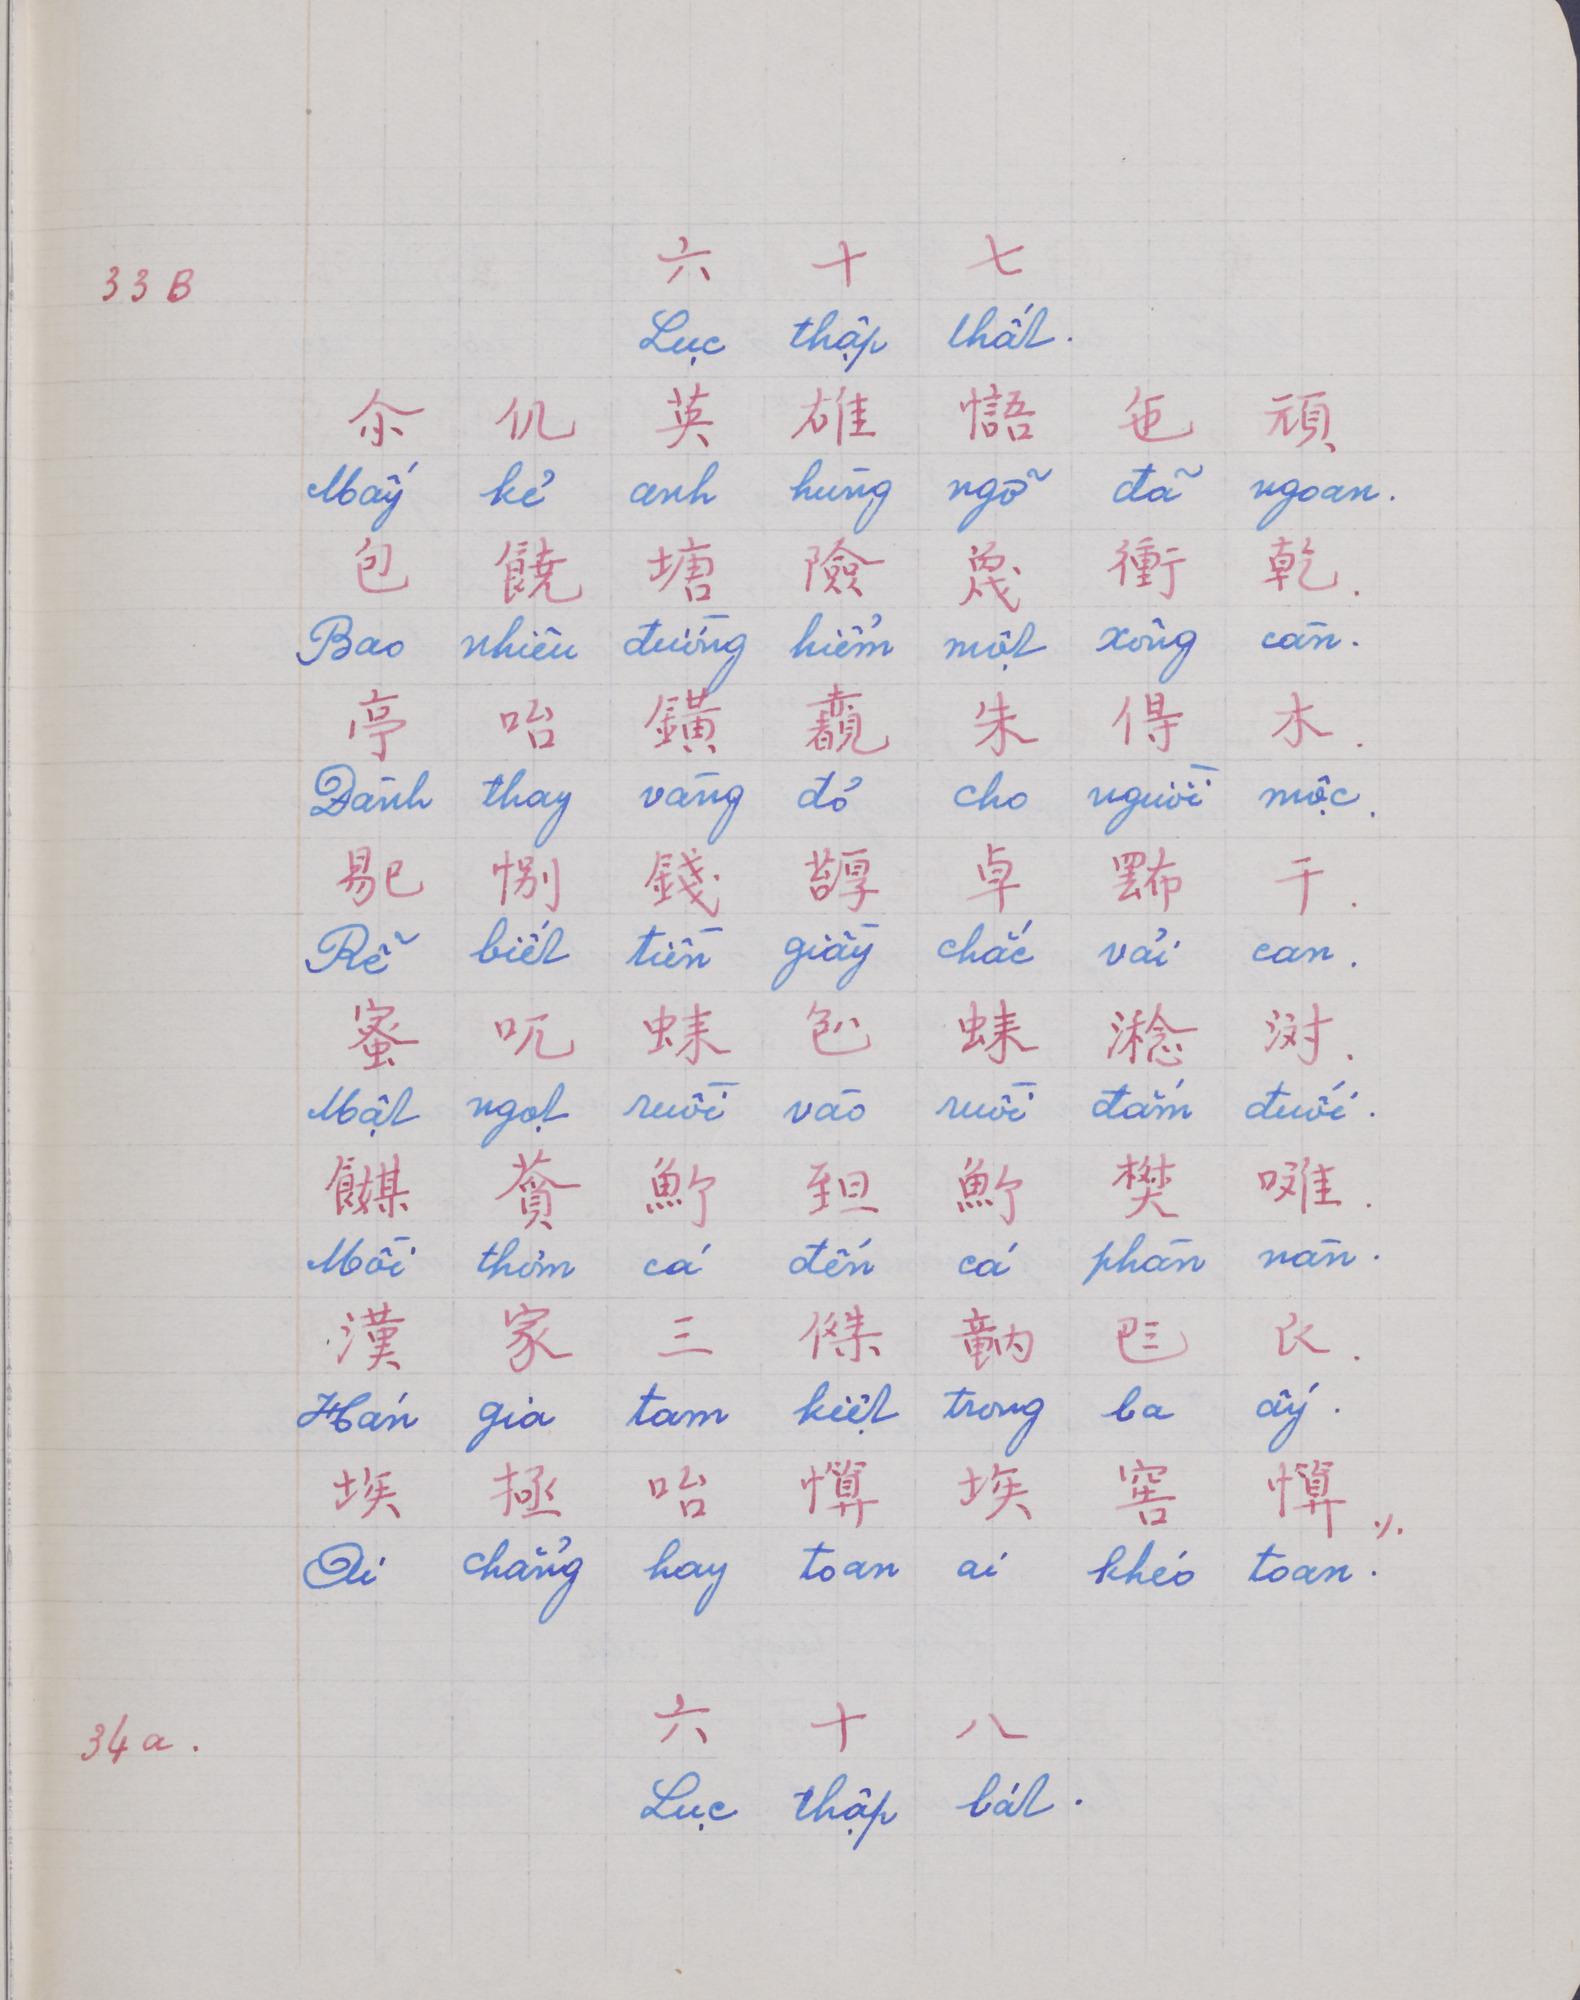 33B
六 十 七
Lục thập thất.
尒 仉 英 雄 𢢯 㐌 頑
Mấy kẻ anh hùng ngỡ đã ngoan.
包 饒 塘 險 𠬠 衝 乾.
Bao nhiêu đường hiểm một xông càn.
亭 咍 鐄 覩 朱 得 木.
Đành thay vàng đỏ cho người mộc.
易 别 錢 卓 干.
Rễ biết tiền giầy chắc vải can.
蜜 吪 蛛 蛛 湛 .
Mật ngọt ruồi vào ruồi đắm đuối.
𩚵 𩵜 𦤾 𩵜 樊 㗂.
Mồi thơm cá đến cá phàn nàn.
漢 家 三 傑 𥪝 𠀧 𧘇.
Hán gia tam kiệt trong ba ấy.
埃 拯 咍 憚 埃 窖 憚 ⁒.
Ai chẳng hay toan ai khéo toan.
34a.
六 十 八
Lục thập bát.